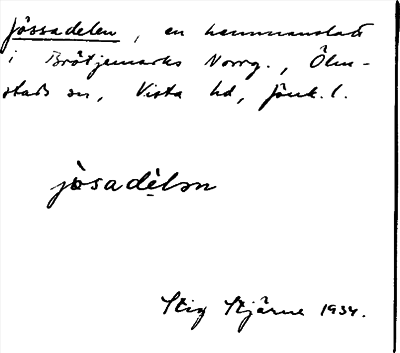 Jössadelen, en hemmansdel
i Brötjemarks Norrg., Ölm-
stads sn, Vista hd, Jönk. l.
jòsadèlən
Stig Stjärne 1934.